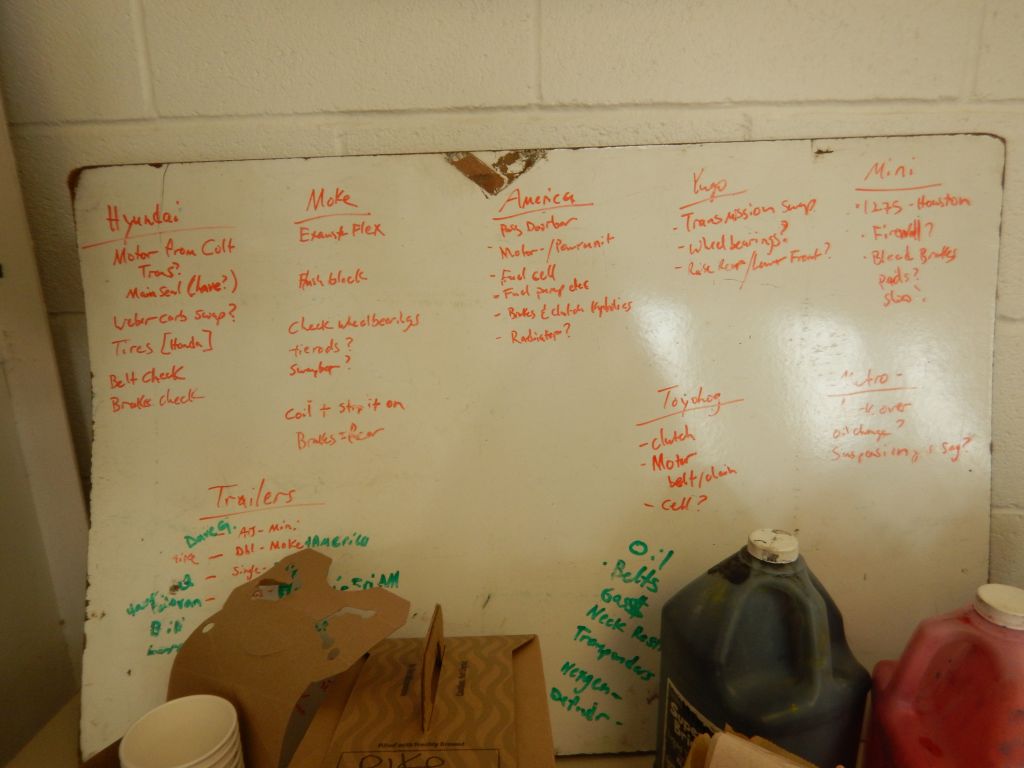 Hyundai
Motor from Colt
Trans?
Main Seal (have?)
Weber carb swap?
Tires [Honda]
Belt Check
Brakes check
Moke
Exhaust Flex
Flush block
Check wheelbearings
tierods?
Swaybar?
Coil + strip it on
Brakes = Rear
America
Pass Doorbar
- Motor-/Powerunit
- Fuel cell
- Fuel pump elec
- Brakes & clutch Hydrolics
- Radiator?
Yugo
- Transmission swap
- wheelbearings?
- Raise Rear/Lower Front?
Mini
• 1275 - Houston
• Firewall?
• Bleed Brakes
pads?
Toyohog
- Clutch
- Motor
belt/chain
- Cell?
Metro -
over
oil change?
Trailers
Dave G. - AJ - Mini
- Dbl - Moke + America
- Single -
Oil
• Belts
Gas
Neck
Transponders